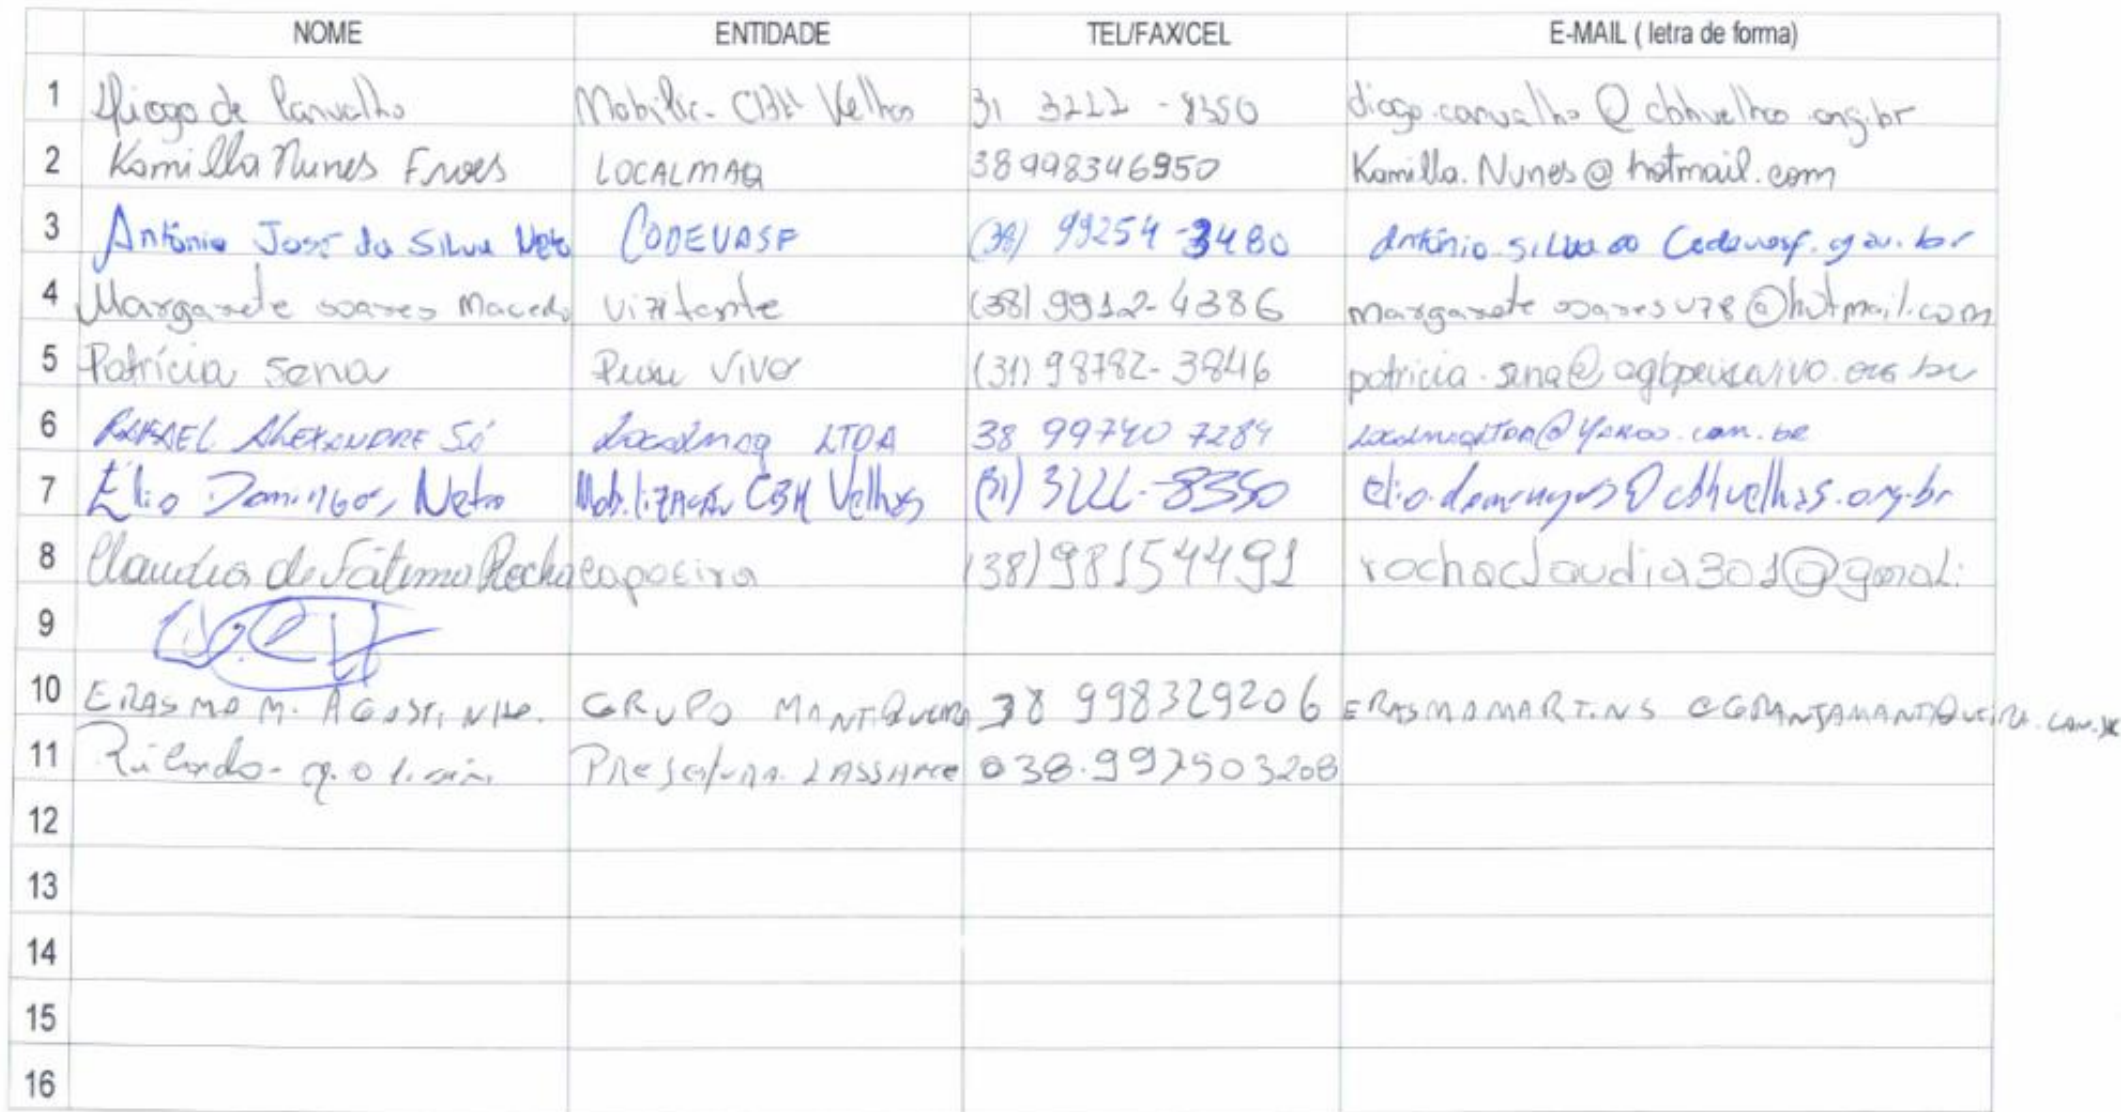 NOME ENTIDADE TEL/FAX/CEL E-MAIL ( letra de forma)
1 Diogo de Carvalho Mobiliz- CBH Velhas 31 3222 - 8350 diogo.carvalho@cbhvelhas.org.br
2 Kamilla Nunes Froes LOCALMAQ 38998346950 Kamilla.Nunes@hotmail.com
3 Antônio José da Silva Neto CODEVASF (38) 99254-3480 antônio.silva@codevasf.gov.br
4 Margarete soares Macedo vizitante (38) 9912-4386 margarete soares v78@hotmail.com
5 Patrícia Sena Peixe Vivo (31) 98782-3846 patricia.sena@agbpeixevivo.org.br
6 RAFAEL ALEXANDRE SÁ Localmaq LTDA 38 99740 7284 localmaqLTDA@yahoo.com.br
7 Élio Domingos Neto Mobilização CBH Velhas (31) 3222-8350 elio.domingos@cbhvelhas.org.br
8 Claudia de Fátima Rocha capoeira (38) 98154491 rochaclaudia301@gmal.
9
10 ERASMO M. AGOSTINHO. GRUPO MANTIQUEIRA 38 998329206 ERASMOMARTINS@GRANJAMANTIQUEIRA.COM.BR
11 PREFEITURA LASSANCE 038.997503208
12
13
14
15
16